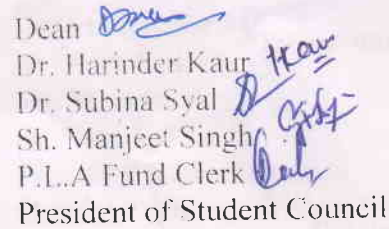 Dean
Dr. Harinder Kaur
Dr. Subina Syal
Sh. Manjeet Singh
P.L.A Fund Clerk
President of Student Council